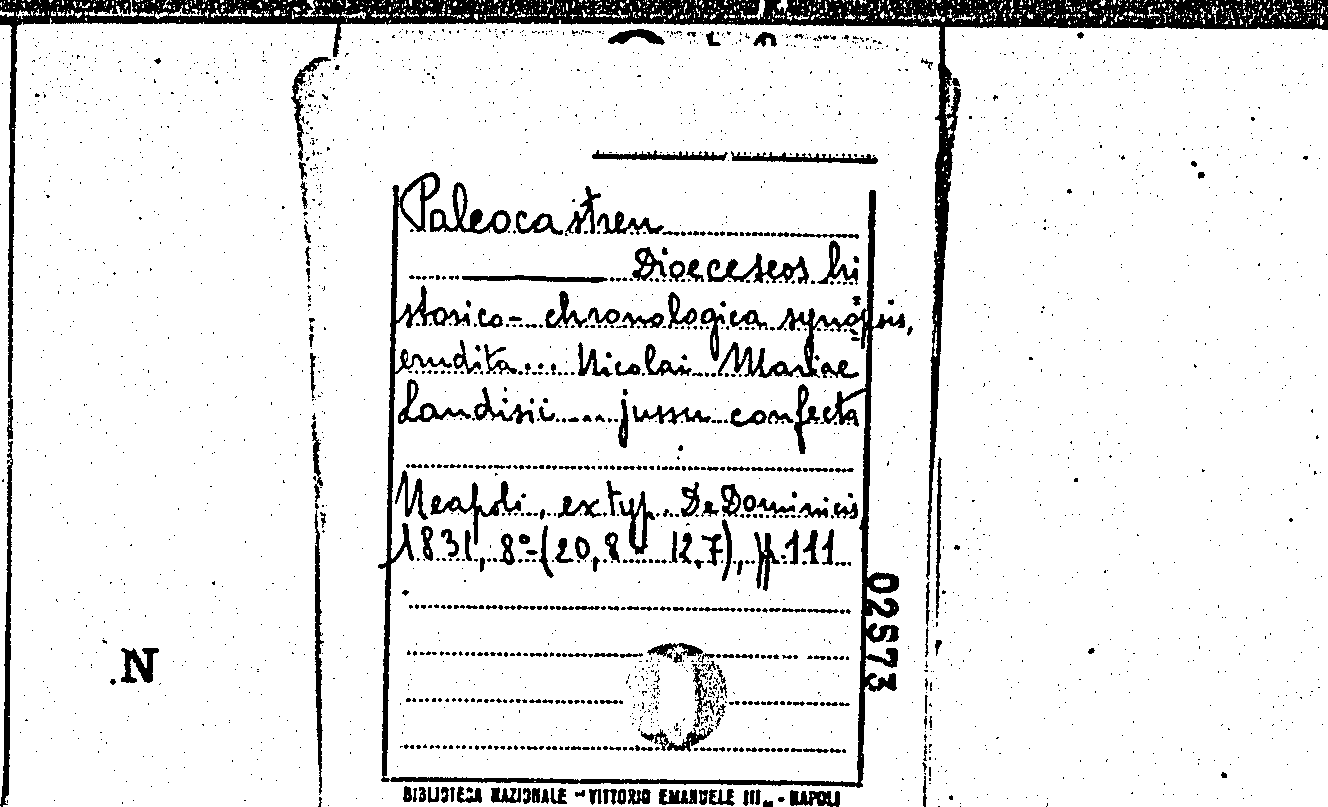 Paleocastren
Dioeceseos hi
storico- chronologica synopsis,
erudita... Nicolai Mariae
Landisii.... jussu confecta
Neapoli, ex typ. De Dominicis
1831, 8°-(20,8 - 12,7), pp. 111
02573
.N
BIBLIOTECA NAZIONALE "VITTORIO EMANUELE III" - NAPOLI